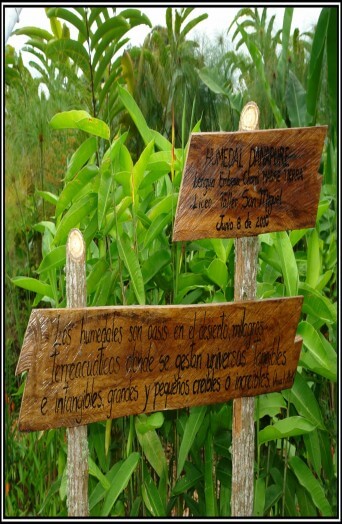 HUMEDAL DANAPIRE
Clara MADRE TIERRA
Liceo Taller San Miguel
Junio 8 de 2010
Los humedales son oasis en el desierto, milagros
terracuáticos donde se gestan universos tangibles
e intangibles grandes y pequeños creíbles o increíbles.